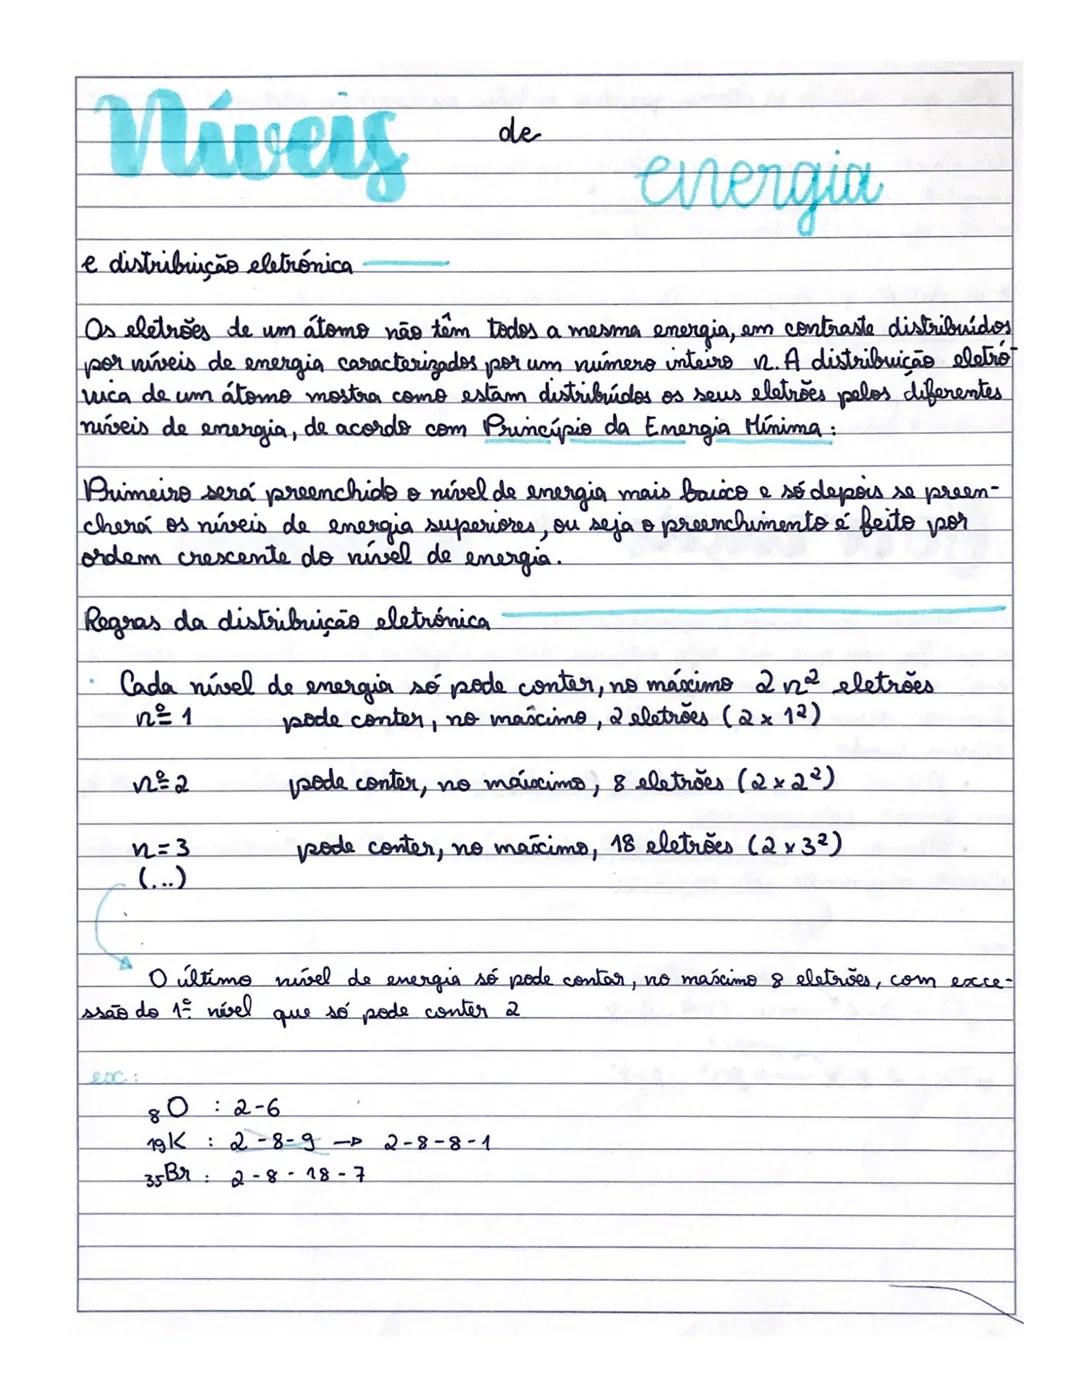 Níveis de energia
e distribuição eletrónica
Os eletrões de um átomo não têm todos a mesma energia, em contraste distribuídos
por níveis de energia caracterizados por um número inteiro n. A distribuição eletró
nica de um átomo mostra como estam distribuídos os seus eletrões pelos diferentes
níveis de energia, de acordo com Princípio da Energia Mínima :
Primeiro será preenchido o nível de energia mais baixo e só depois se preen-
cherá os níveis de energia superiores, ou seja o preenchimento é feito por
ordem crescente do nível de energia.
Regras da distribuição eletrónica
· Cada nível de energia só pode conter, no máximo 2n² eletrões
nº= 1 pode conter, no máximo, 2 eletrões (2 x 1²)
nº= 2 pode conter, no máximo, 8 eletrões (2 x 2²)
n = 3 pode conter, no máximo, 18 eletrões (2 x 3²)
(...)
O último nível de energia só pode contar, no máximo 8 eletrões, com exce-
ssão do 1º nível que só pode conter 2
ex:
₈O : 2-6
₁₉K : 2-8-9 → 2-8-8-1
₃₅Br : 2-8-18-7